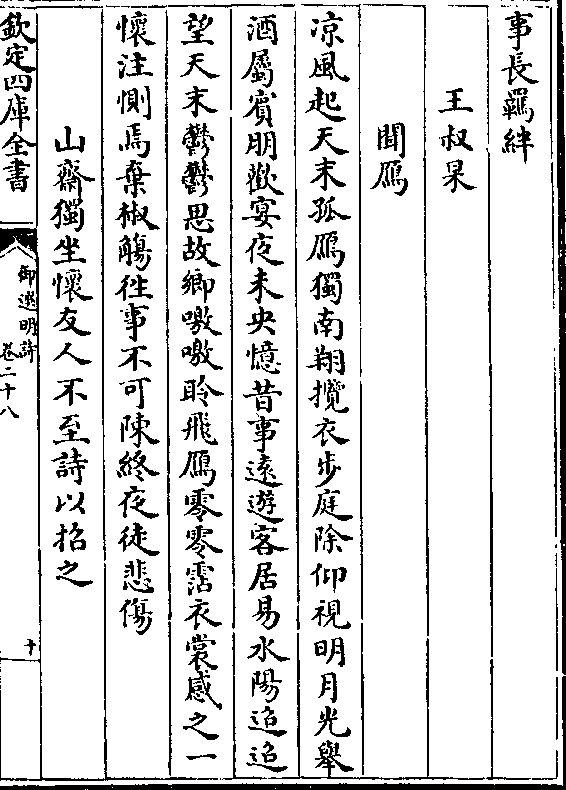 事長羈絆
王叔杲
聞鴈
凉風起天末孤鴈獨南翔攬衣步庭除仰視明月光舉
酒屬賔朋歡宴夜未央憶昔事遠遊客居易水陽迢迢
望天末鬱鬱思故鄉嗷嗷聆飛鴈零零霑衣裳感之一
懷注惻焉棄椒觴徃事不可陳終夜徒悲傷
山齋獨坐懷友人不至詩以招之
欽定四庫全書
御選明詩
卷二十八
十